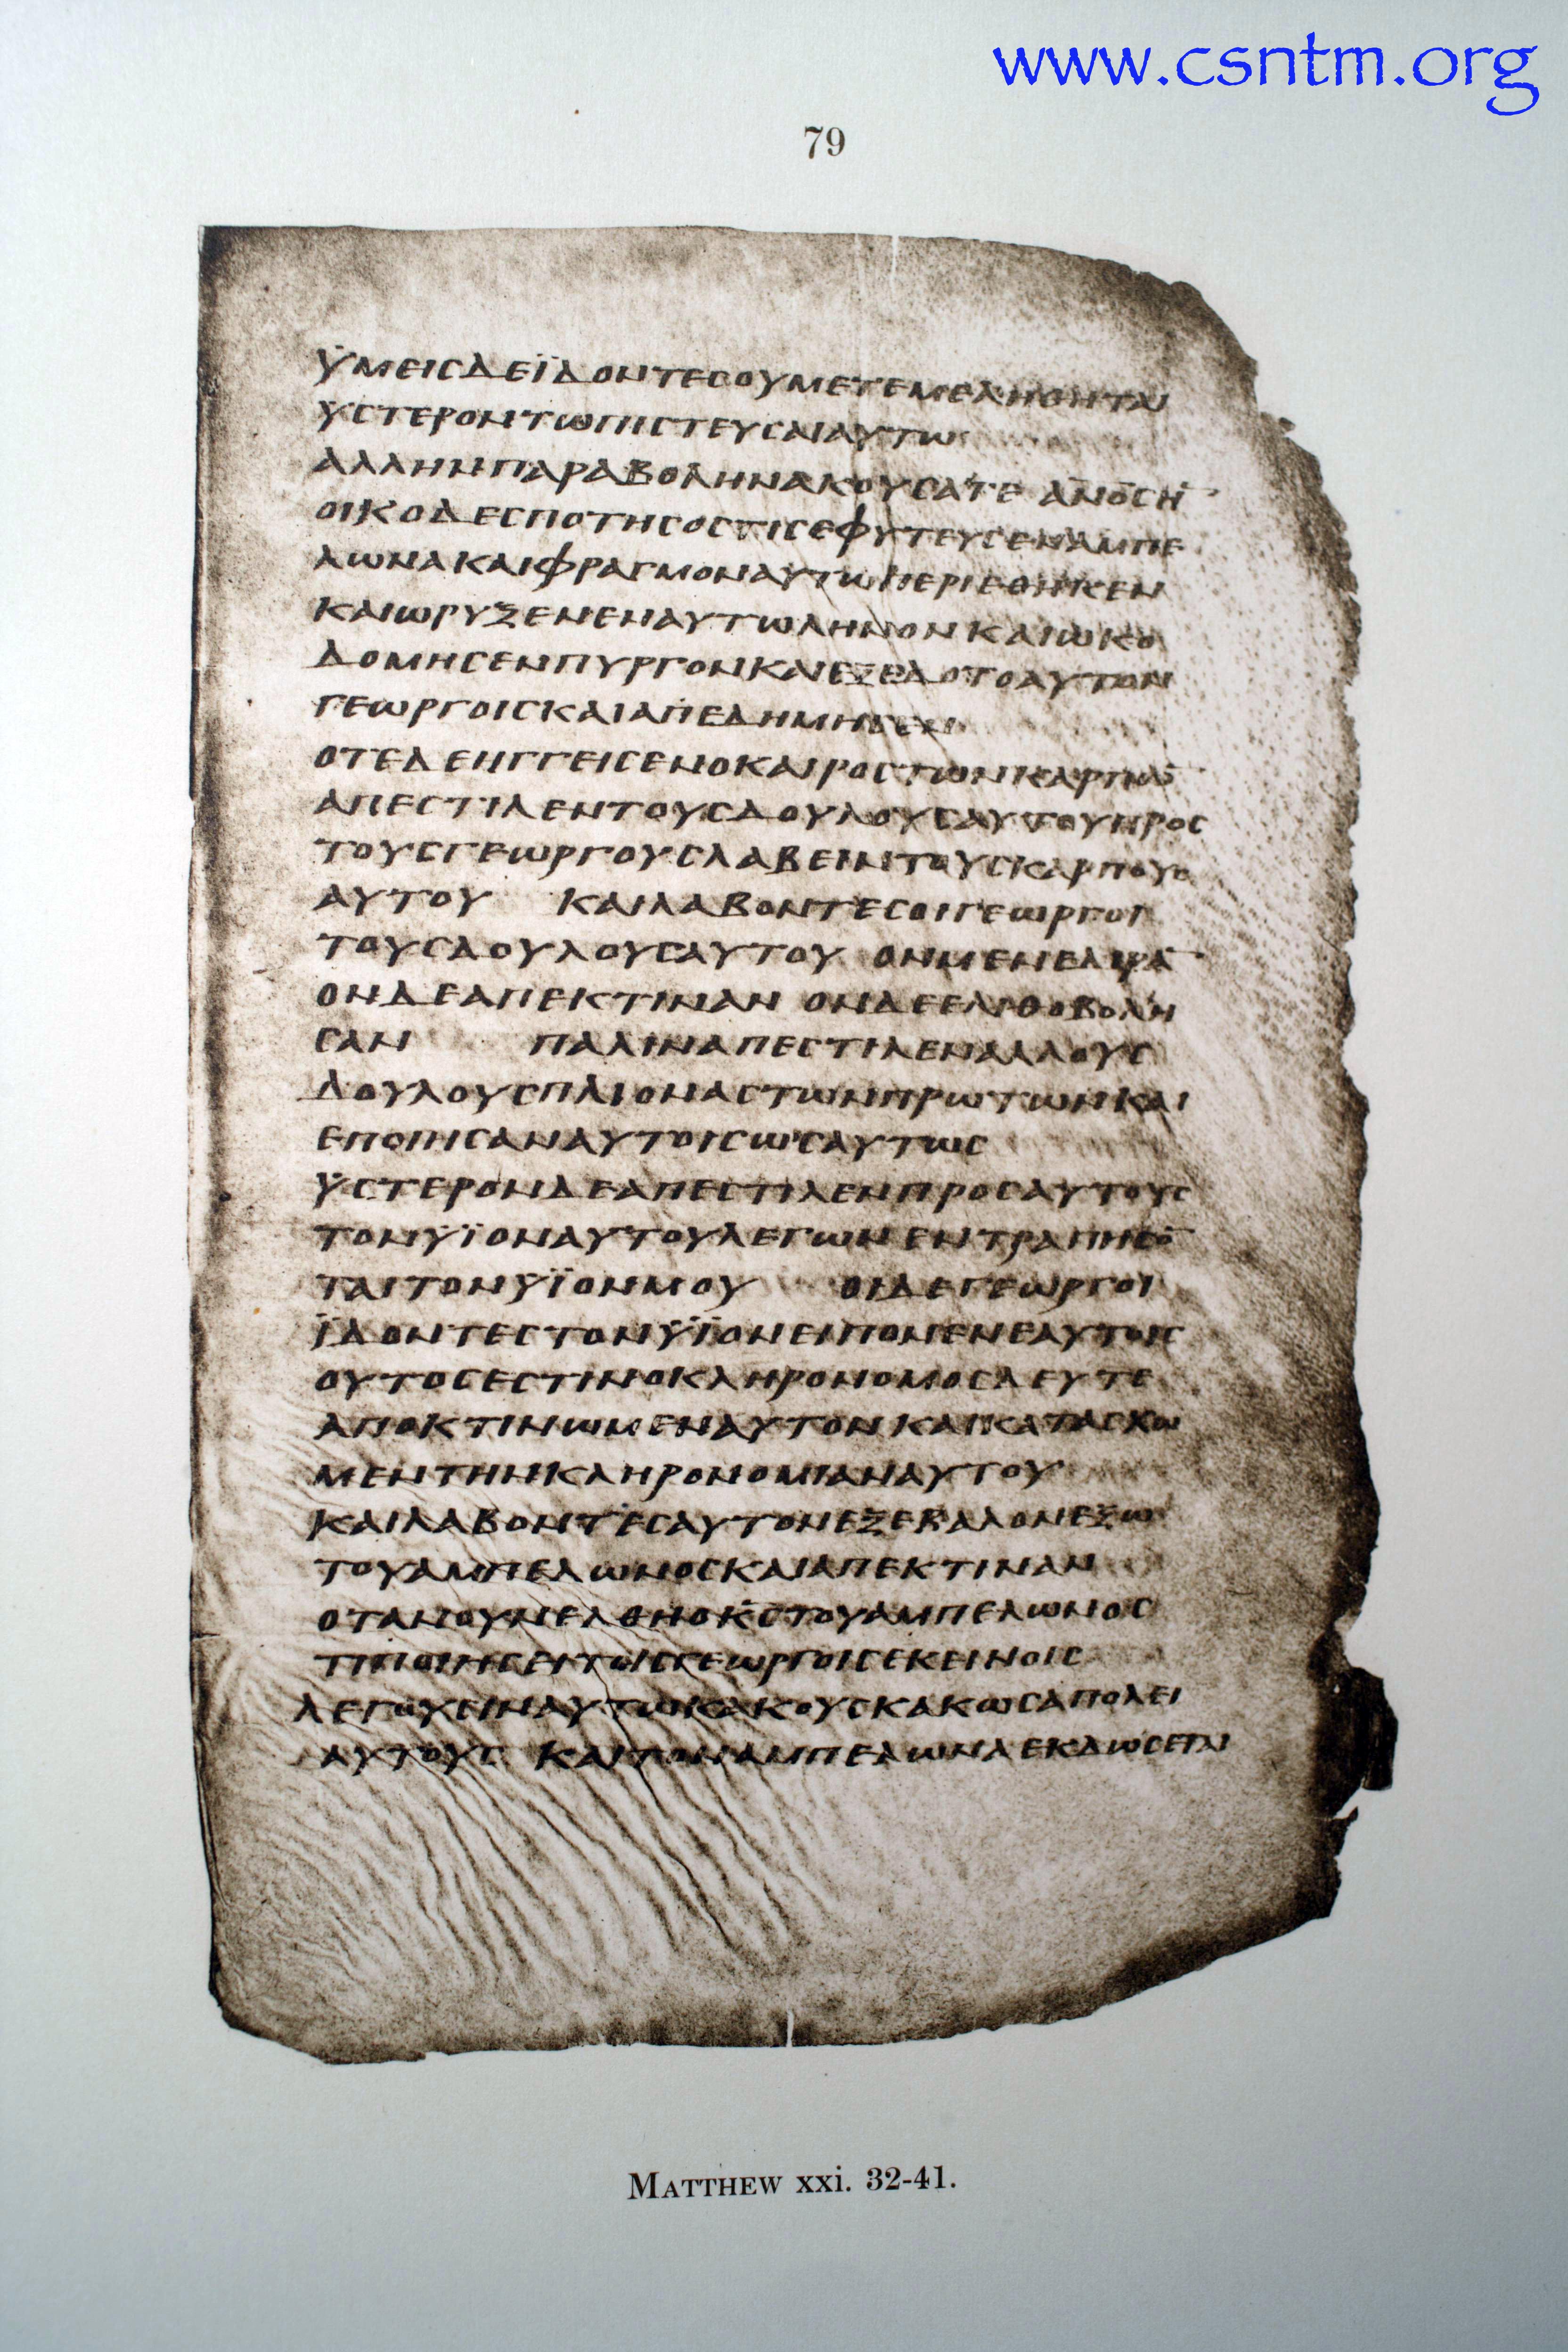 www.csntm.org
79
ΫΜΕΙСΔΕΪΔΟΝΤΕСΟΥΜΕΤΕΜΕΛΗΘΗΤΑΙ
ΫСΤΕΡΟΝΤΩΠΙСΤΕΥСΑΙΑΥΤΩ
ΑΛΛΗΝΠΑΡΑΒΟΛΗΝΑΚΟΥСΑΤΕ ΑΝΟСΗ̅
ΟΙΚΟΔΕСΠΟΤΗСΟСΤΙСΕΦΥΤΕΥСΕΝΑΜΠΕ
ΛΩΝΑΚΑΙΦΡΑΓΜΟΝΑΥΤΩΠΕΡΙΕΘΗΚΕΝ
ΚΑΙΩΡΥΞΕΝΕΝΑΥΤΩΛΗΝΟΝΚΑΙΩΚΟ
ΔΟΜΗСΕΝΠΥΡΓΟΝΚΑΙΕΞΕΔΟΤΟΑΥΤΟΝ
ΓΕΩΡΓΟΙСΚΑΙΑΠΕΔΗΜΗСΕΝ
ΟΤΕΔΕΗΓΓΕΙСΕΝΟΚΑΙΡΟСΤΩΝΚΑΡΠΩ̅
ΑΠΕСΤΙΛΕΝΤΟΥСΔΟΥΛΟΥСΑΥΤΟΥΠΡΟС
ΤΟΥСΓΕΩΡΓΟΥСΛΑΒΕΙΝΤΟΥСΚΑΡΠΟΥС
ΑΥΤΟΥ ΚΑΙΛΑΒΟΝΤΕСΟΙΓΕΩΡΓΟΙ
ΤΟΥСΔΟΥΛΟΥСΑΥΤΟΥ ΟΝΜΕΝΕΔΙΡΑ̅
ΟΝΔΕΑΠΕΚΤΙΝΑΝ ΟΝΔΕΕΛΙΘΟΒΟΛΗ
СΑΝ ΠΑΛΙΝΑΠΕСΤΙΛΕΝΑΛΛΟΥС
ΔΟΥΛΟΥСΠΛΙΟΝΑСΤΩΝΠΡΩΤΩΝΚΑΙ
ΕΠΟΙΗСΑΝΑΥΤΟΙСΩСΑΥΤΩС
ΫСΤΕΡΟΝΔΕΑΠΕСΤΙΛΕΝΠΡΟСΑΥΤΟΥС
ΤΟΝΫΪΟΝΑΥΤΟΥΛΕΓΩΝΕΝΤΡΑΠΗСΟ̅
ΤΑΙΤΟΝΫΪΟΝΜΟΥ ΟΙΔΕΓΕΩΡΓΟΙ
ΪΔΟΝΤΕСΤΟΝΫΪΟΝΕΙΠΟΝΕΝΕΑΥΤΟΙС
ΟΥΤΟСΕСΤΙΝΟΚΛΗΡΟΝΟΜΟСΔΕΥΤΕ
ΑΠΟΚΤΙΝΩΜΕΝΑΥΤΟΝΚΑΙΚΑΤΑСΧΩ
ΜΕΝΤΗΝΚΛΗΡΟΝΟΜΙΑΝΑΥΤΟΥ
ΚΑΙΛΑΒΟΝΤΕСΑΥΤΟΝΕΞΕΒΑΛΟΝΕΞΩ
ΤΟΥΑΜΠΕΛΩΝΟСΚΑΙΑΠΕΚΤΙΝΑΝ
ΟΤΑΝΟΥΝΕΛΘΗΟΚ̅С̅ΤΟΥΑΜΠΕΛΩΝΟС
ΤΙΠΟΙΗСΕΙΤΟΙСΓΕΩΡΓΟΙСΕΚΕΙΝΟΙС
ΛΕΓΟΥСΙΝΑΥΤΩΚΑΚΟΥСΚΑΚΩСΑΠΟΛΕΙ
ΑΥΤΟΥС ΚΑΙΤΟΝΑΜΠΕΛΩΝΑΕΚΔΩСΕΤΑΙ
MATTHEW xxi. 32-41.